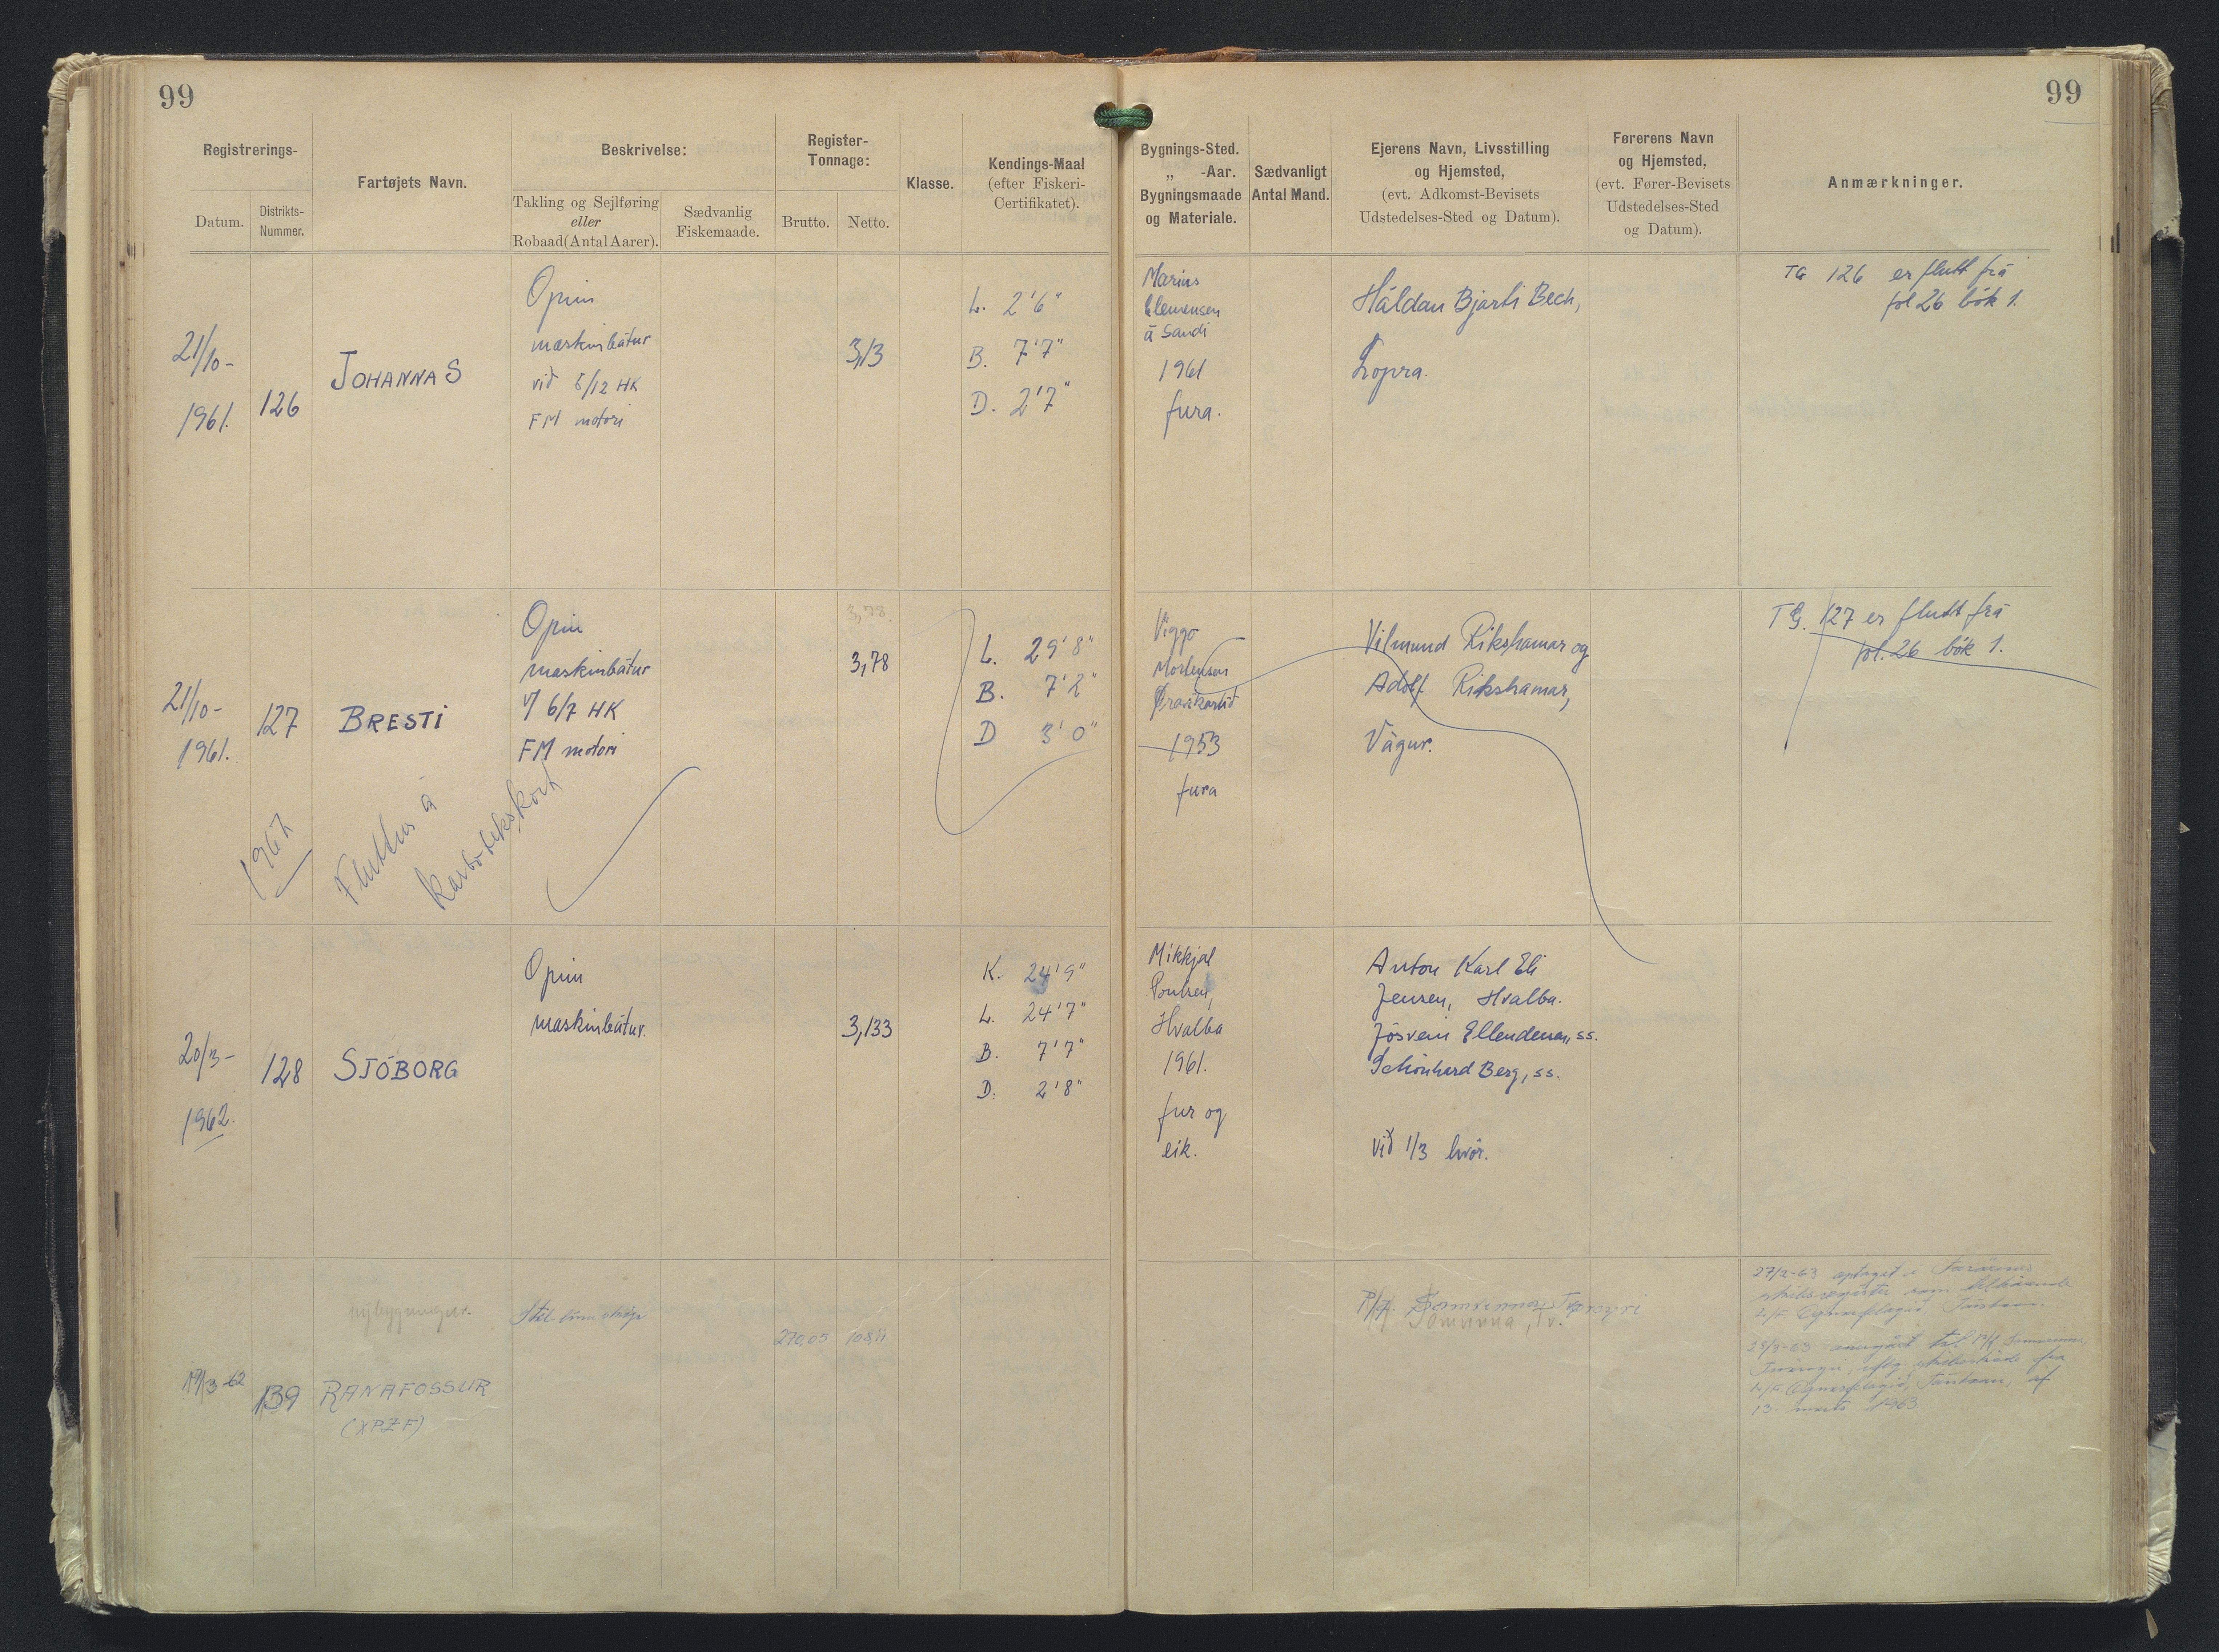 99
99
Registrerings-
Datum.
Distrikts-
Nummer.
Fartøjets Navn.
Beskrivelse:
Takling og Sejlføring
eller
Robaad (Antal Aarer).
Sædvanlig
Fiskemaade.
Register-
Tonnage:
Brutto.
Netto.
Klasse.
Kendings-Maal
(efter Fiskeri-
Certifikatet).
Bygnings-Sted.
„ -Aar.
Bygningsmaade
og Materiale.
Sædvanligt
Antal Mand.
Ejerens Navn, Livsstilling
og Hjemsted,
(evt. Adkomst-Bevisets
Udstedelses-Sted og Datum).
Førerens Navn
og Hjemsted,
(evt. Fører-Bevisets
Udstedelses-Sted
og Datum).
Anmærkninger.
21/10-
1961.
126
JOHANNA S
Opin
maskinbátur
við 8/12 HK
FM motori
3,13
L. 2'6"
B. 7'7"
D. 2'7"
Marius
Clemensen
á Sandi
1961
fura.
Háldan Bjarti Bech,
Lopra.
TG 126 er flutt frá
fol 26 bók 1.
21/10-
1961.
127
BRESTI
Opin
maskinbátur
v/ 6/7 HK
FM motori
3,78.
3,78
L. 29'8"
B. 7'2"
D 3'0"
Viggo
Mortensen
1953
fura
Vilmund Rikshamar og
Adolf Rikshamar,
Vágur.
TG. 127 er flutt frá
fol. 26 bók 1.
1967
Fluttur á
Kartotekskort
20/3-
1962.
128
SJÓBORG
Opin
maskinbátur.
3,133
K. 24'9"
L. 24'7"
B. 7'7"
D. 2'8"
Mikkjal
Poulsen,
Hvalba
1961.
fur og
eik.
Anton Karl Eli
Jensen, Hvalba.
Jósvein Ellendersen, ss.
Schönhard Berg, ss.
við 1/3 hvør.
19/3-62
139
nybygningur.
RANAFOSSUR
(XPZF)
270,05
108,11
P/F.
27/2-63 optaget i Færøernes
skibsregister som tilhørende
28/3-63
13. marts 1963